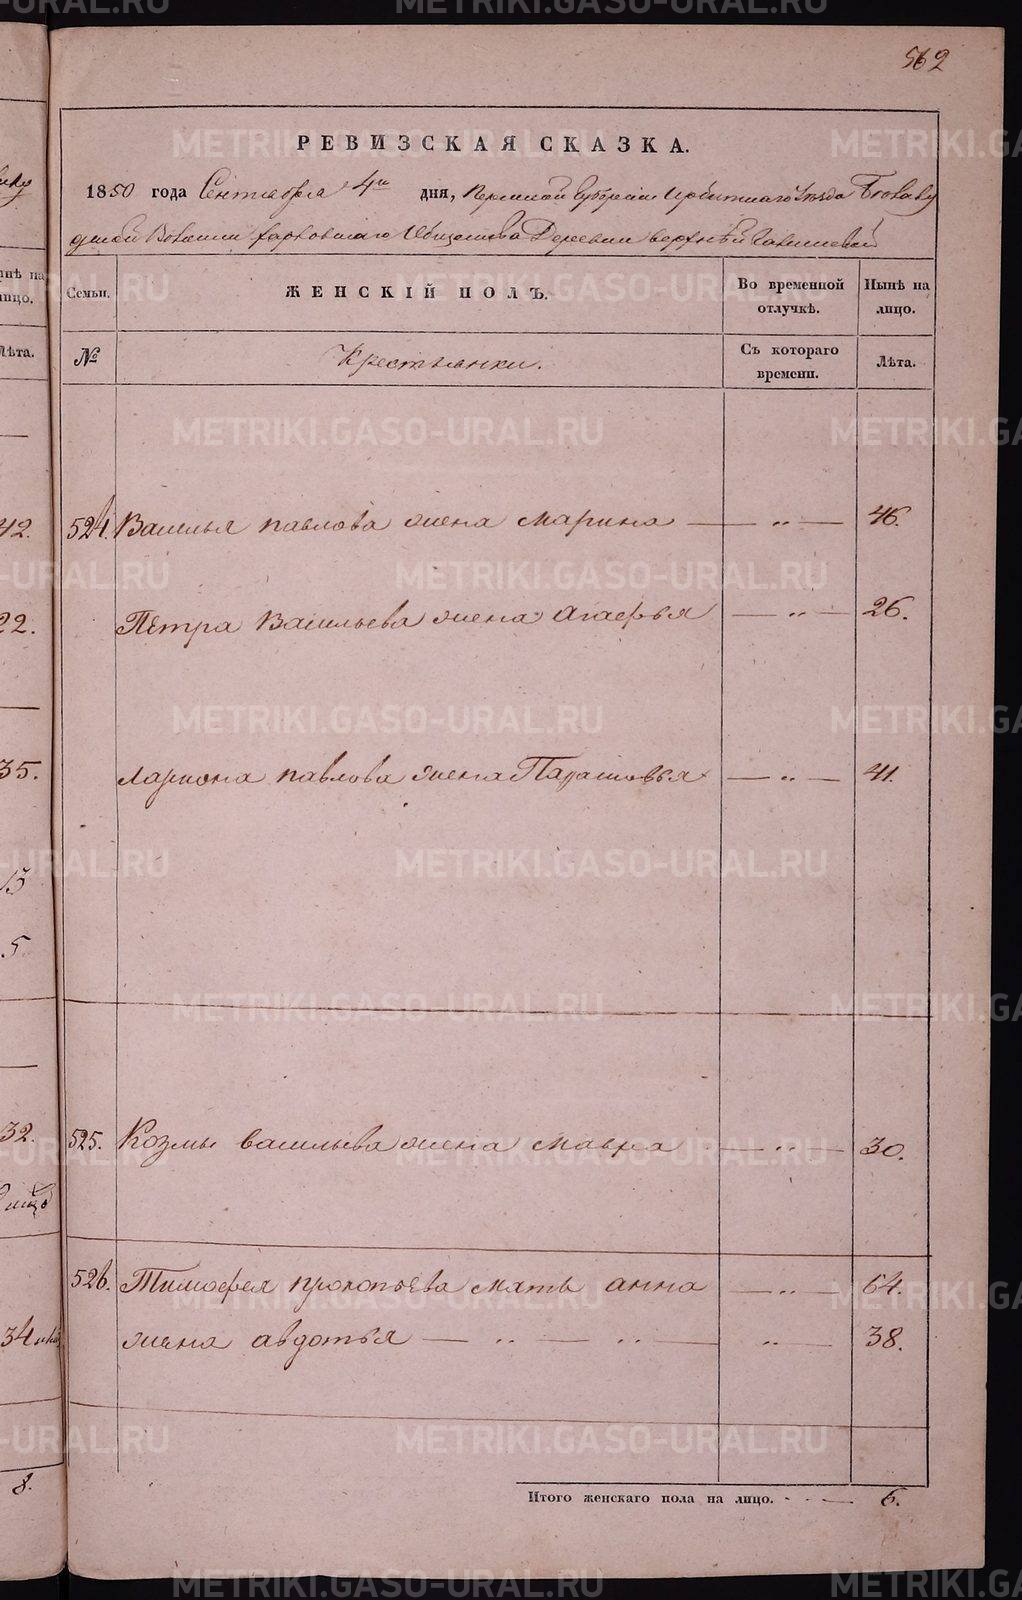 562
РЕВИЗСКАЯ СКАЗКА.
1850 года Сентября 4го дня, Пермской Губернии Ирбитскаго Уезда
Волости Общества Деревни верхней
Семьи. ЖЕНСКІЙ ПОЛЪ. Во временной отлучкѣ. Нынѣ на лицо.
№ Крестьянки. Съ котораго времени. Лѣта.
524. Василья павлова жена марина — „ — 46.
Пётра Васильева жена агафья — „ — 26.
лариона павлова жена Парасковья — „ — 41.
525. Козмы васильева жена мавра — „ — 30.
526. Тимофея прокопьева мать анна — „ — 64.
жена авдотья — „ — „ — „ — 38.
Итого женскаго пола на лицо. 6.
нѣ на
лицо.
Лѣта.
42.
22.
35.
13
5
32.
34
8.
METRIKI.GASO-URAL.RU